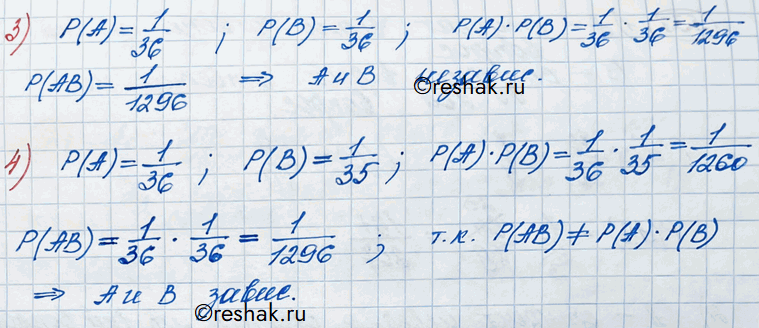 3) P(A)=1/36 ; P(B)=1/36 ; P(A)·P(B)=1/36·1/36=1/1296
P(AB)=1/1296 ⇒ A и B независ.
©reshak.ru
4) P(A)=1/36 ; P(B)=1/35 ; P(A)·P(B)=1/36·1/35=1/1260
P(AB)=1/36·1/36=1/1296 ; т.к. P(AB)≠P(A)·P(B)
⇒ A и B завис.
©reshak.ru